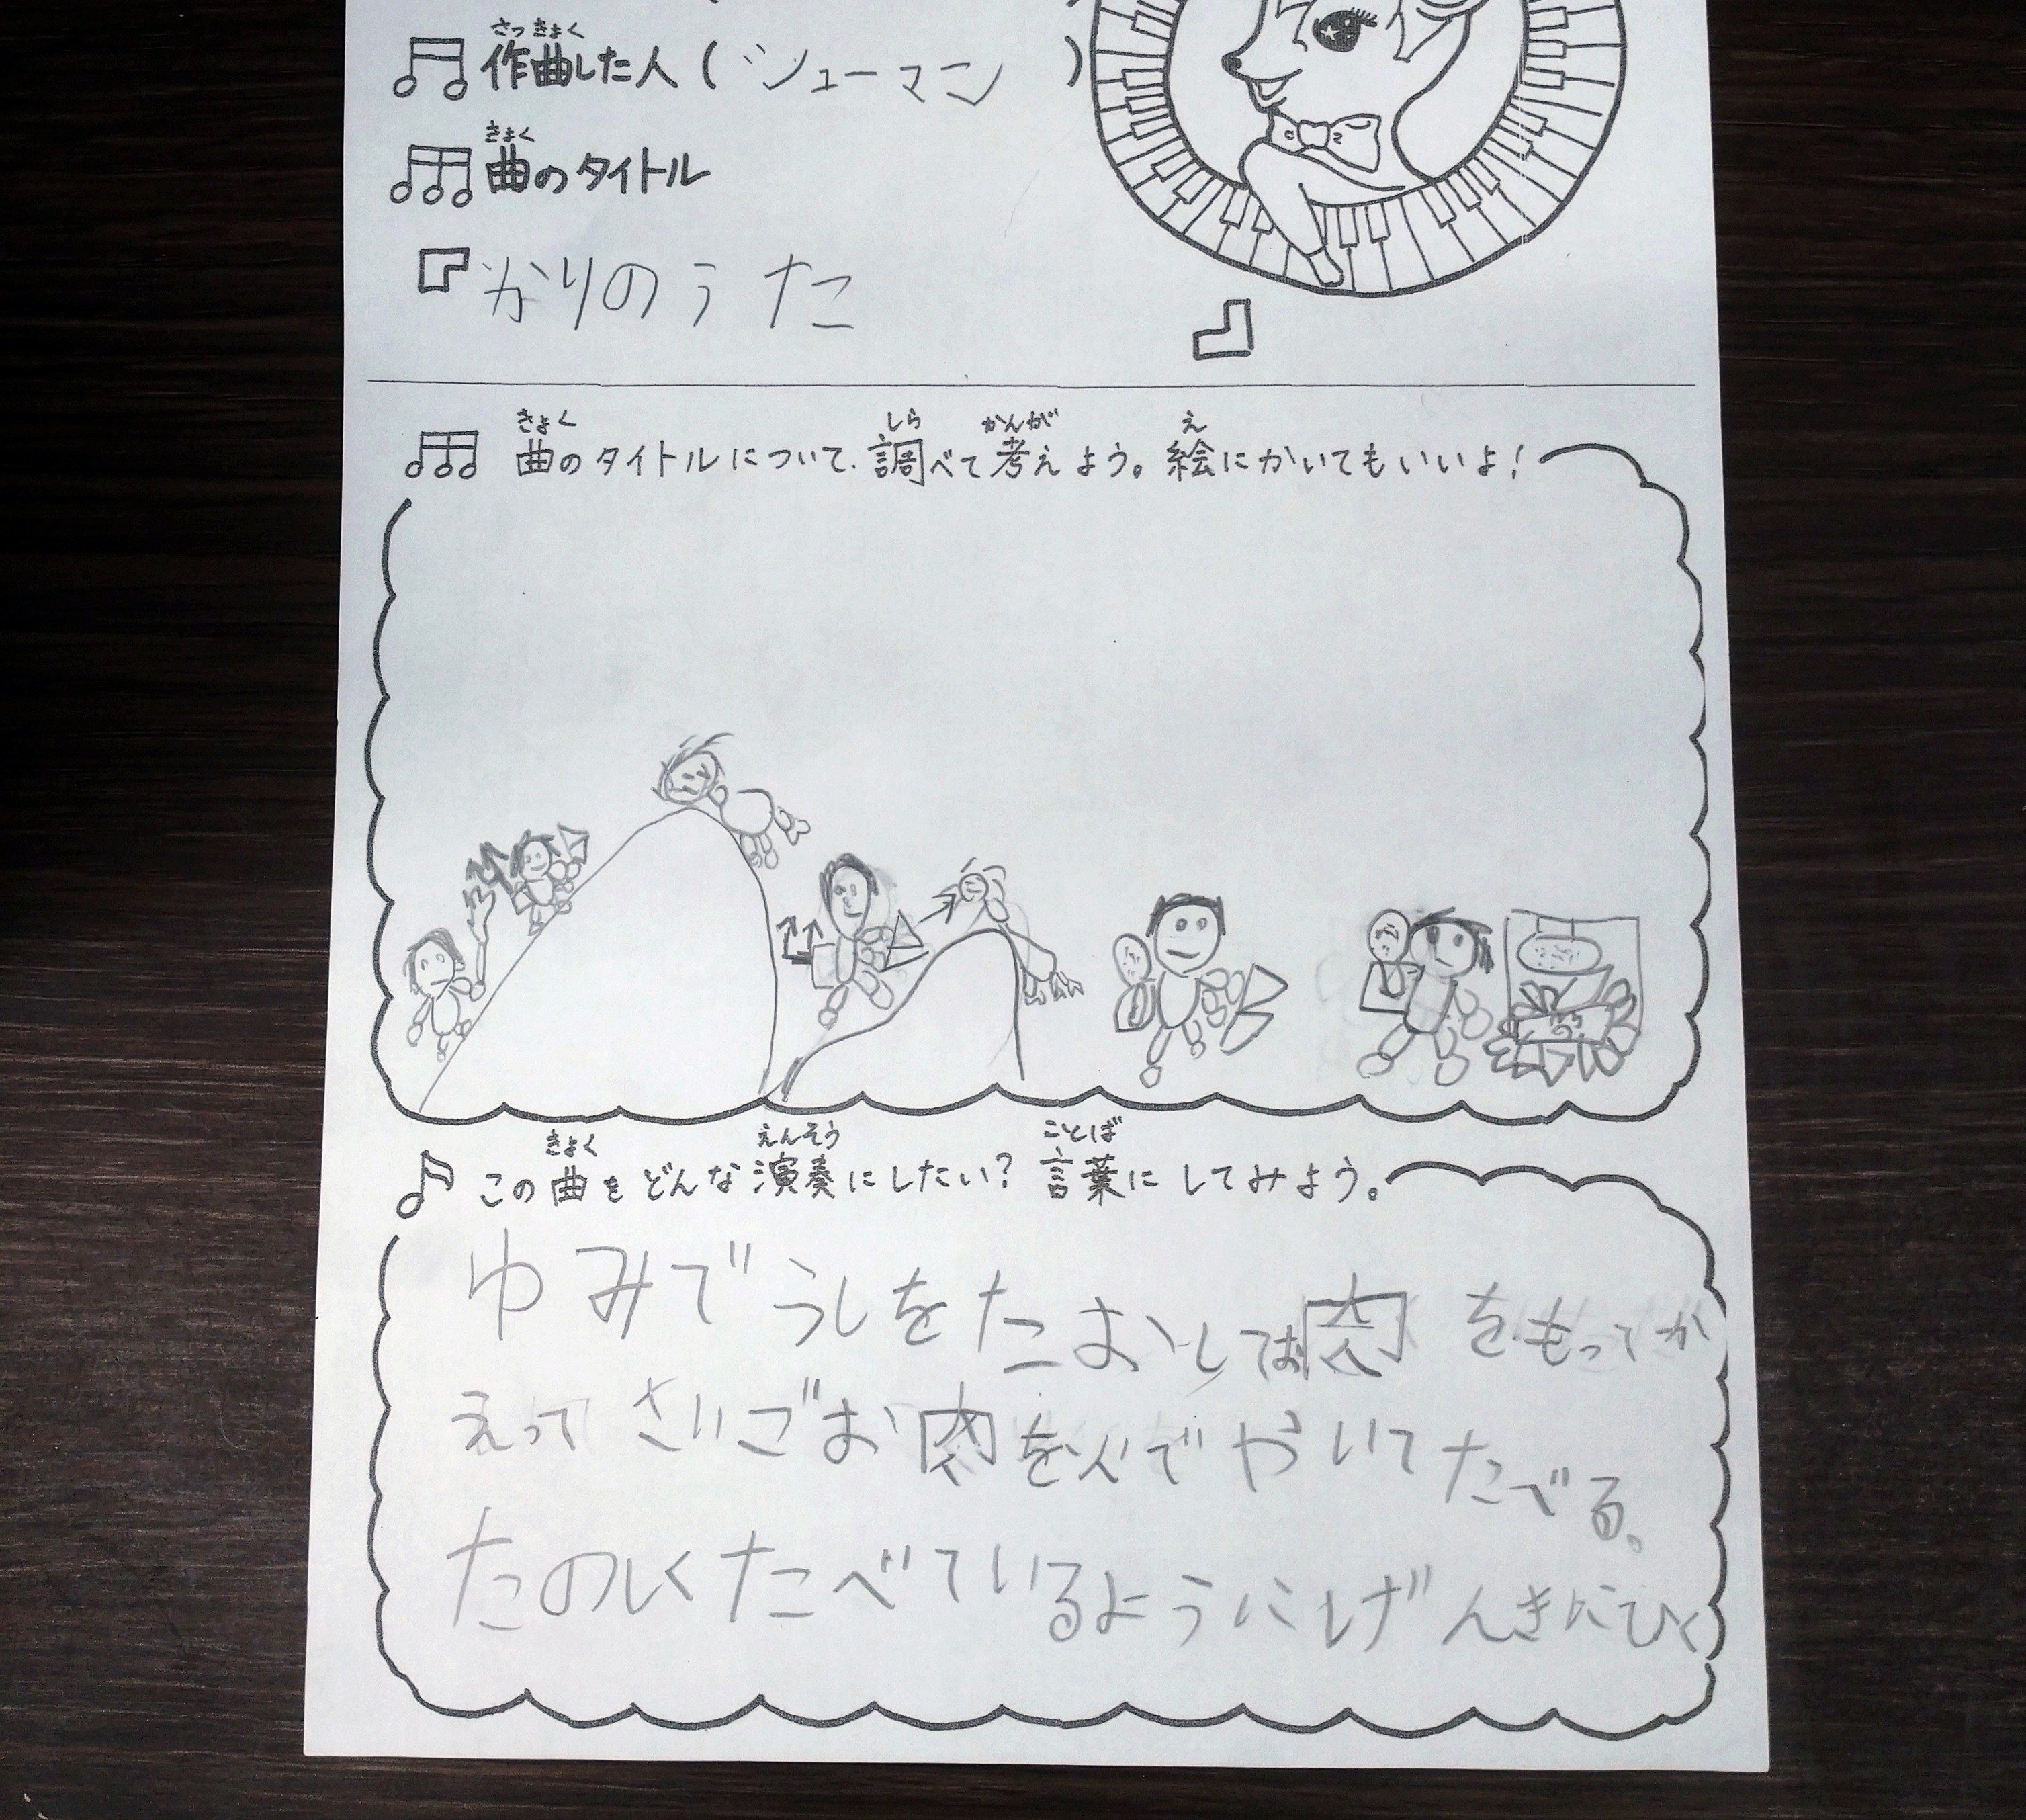 さっきょく
作曲した人(シューマン)
きょく
曲のタイトル
『かりのうた』
きょく しら かんが え
曲のタイトルについて、調べて考えよう。絵にかいてもいいよ!
きょく えんそう ことば
この曲をどんな演奏にしたい?言葉にしてみよう。
ゆみでうしをたおしてお肉をもってか
えってさいごお肉を でやいてたべる。
たのしくたべているようにげんきにひく